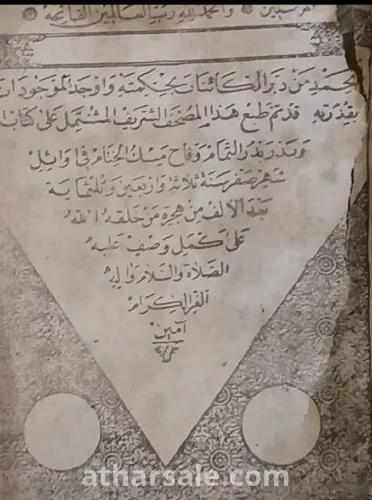 المرسلين والحمد لله رب العالمين الفاتحه
بحمد من دبر الكائنات بحكمته واوجد الموجودات
بقدرته قد تم طبع هذا المصحف الشريف المشتمل على كتاب
وبدر بدر التمام وفاح مسك الختام في اوائل
شهر صفر سنة ثلاثة واربعين وثلثماية
بعد الالف من هجرة من خلقه الله
على اكمل وصف عليه
الصلاة والسلام واله
الغر الكرام
آمين
atharsale.com